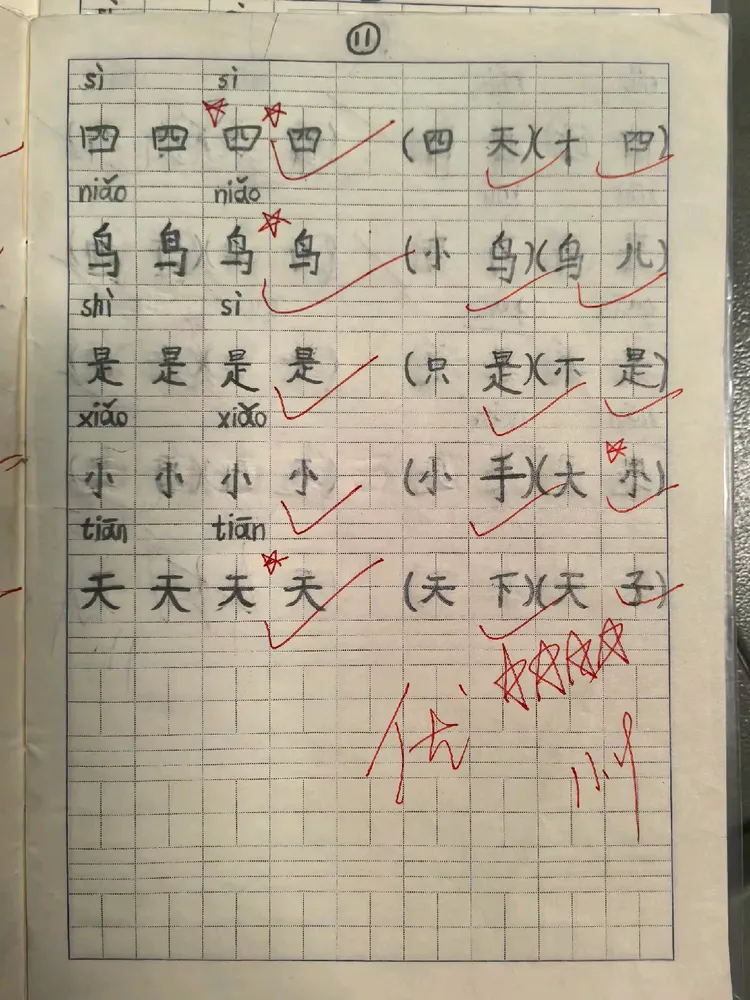 ⑪
sì sì
四 四 四 四 (四 天)(十 四)
niǎo niǎo
鸟 鸟 鸟 鸟 (小 鸟)(鸟 儿)
shì sì
是 是 是 是 (只 是)(不 是)
xiǎo xiǎo
小 小 小 小 (小 手)(大 小)
tiān tiān
天 天 天 天 (天 下)(天 子)
优
11.9